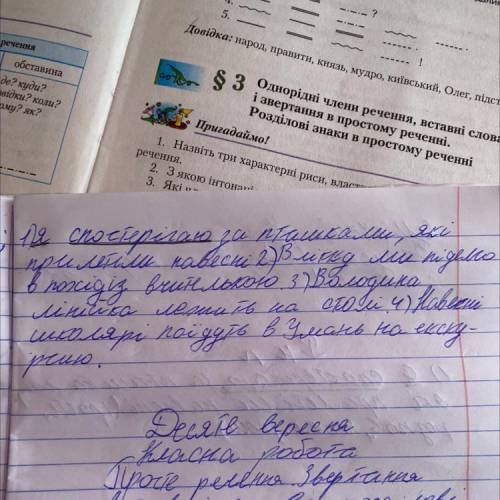 4.
5. ?
Довідка: народ, правити, князь, мудро, київський, Олег, підст
!
речення
обставина
де? куди?
відки? коли?
ому? як?
§ 3 Однорідні члени речення, вставні слова
і звертання в простому реченні.
Розділові знаки в простому реченні
Пригадаймо!
1. Назвіть три характерні риси, власт
речення.
2. З якою інтонаці
3. Які
1) Я спостерігаю за пташками, які
прилетіли навесні 2) Влітку ми підемо
в похід із вчителькою. 3) Володина
лінійка лежить на столі. 4) Навесні
школярі поїдуть в Умань на екску-
рсию.
Десяте вересня
Класна робота
Просте речення Звертання